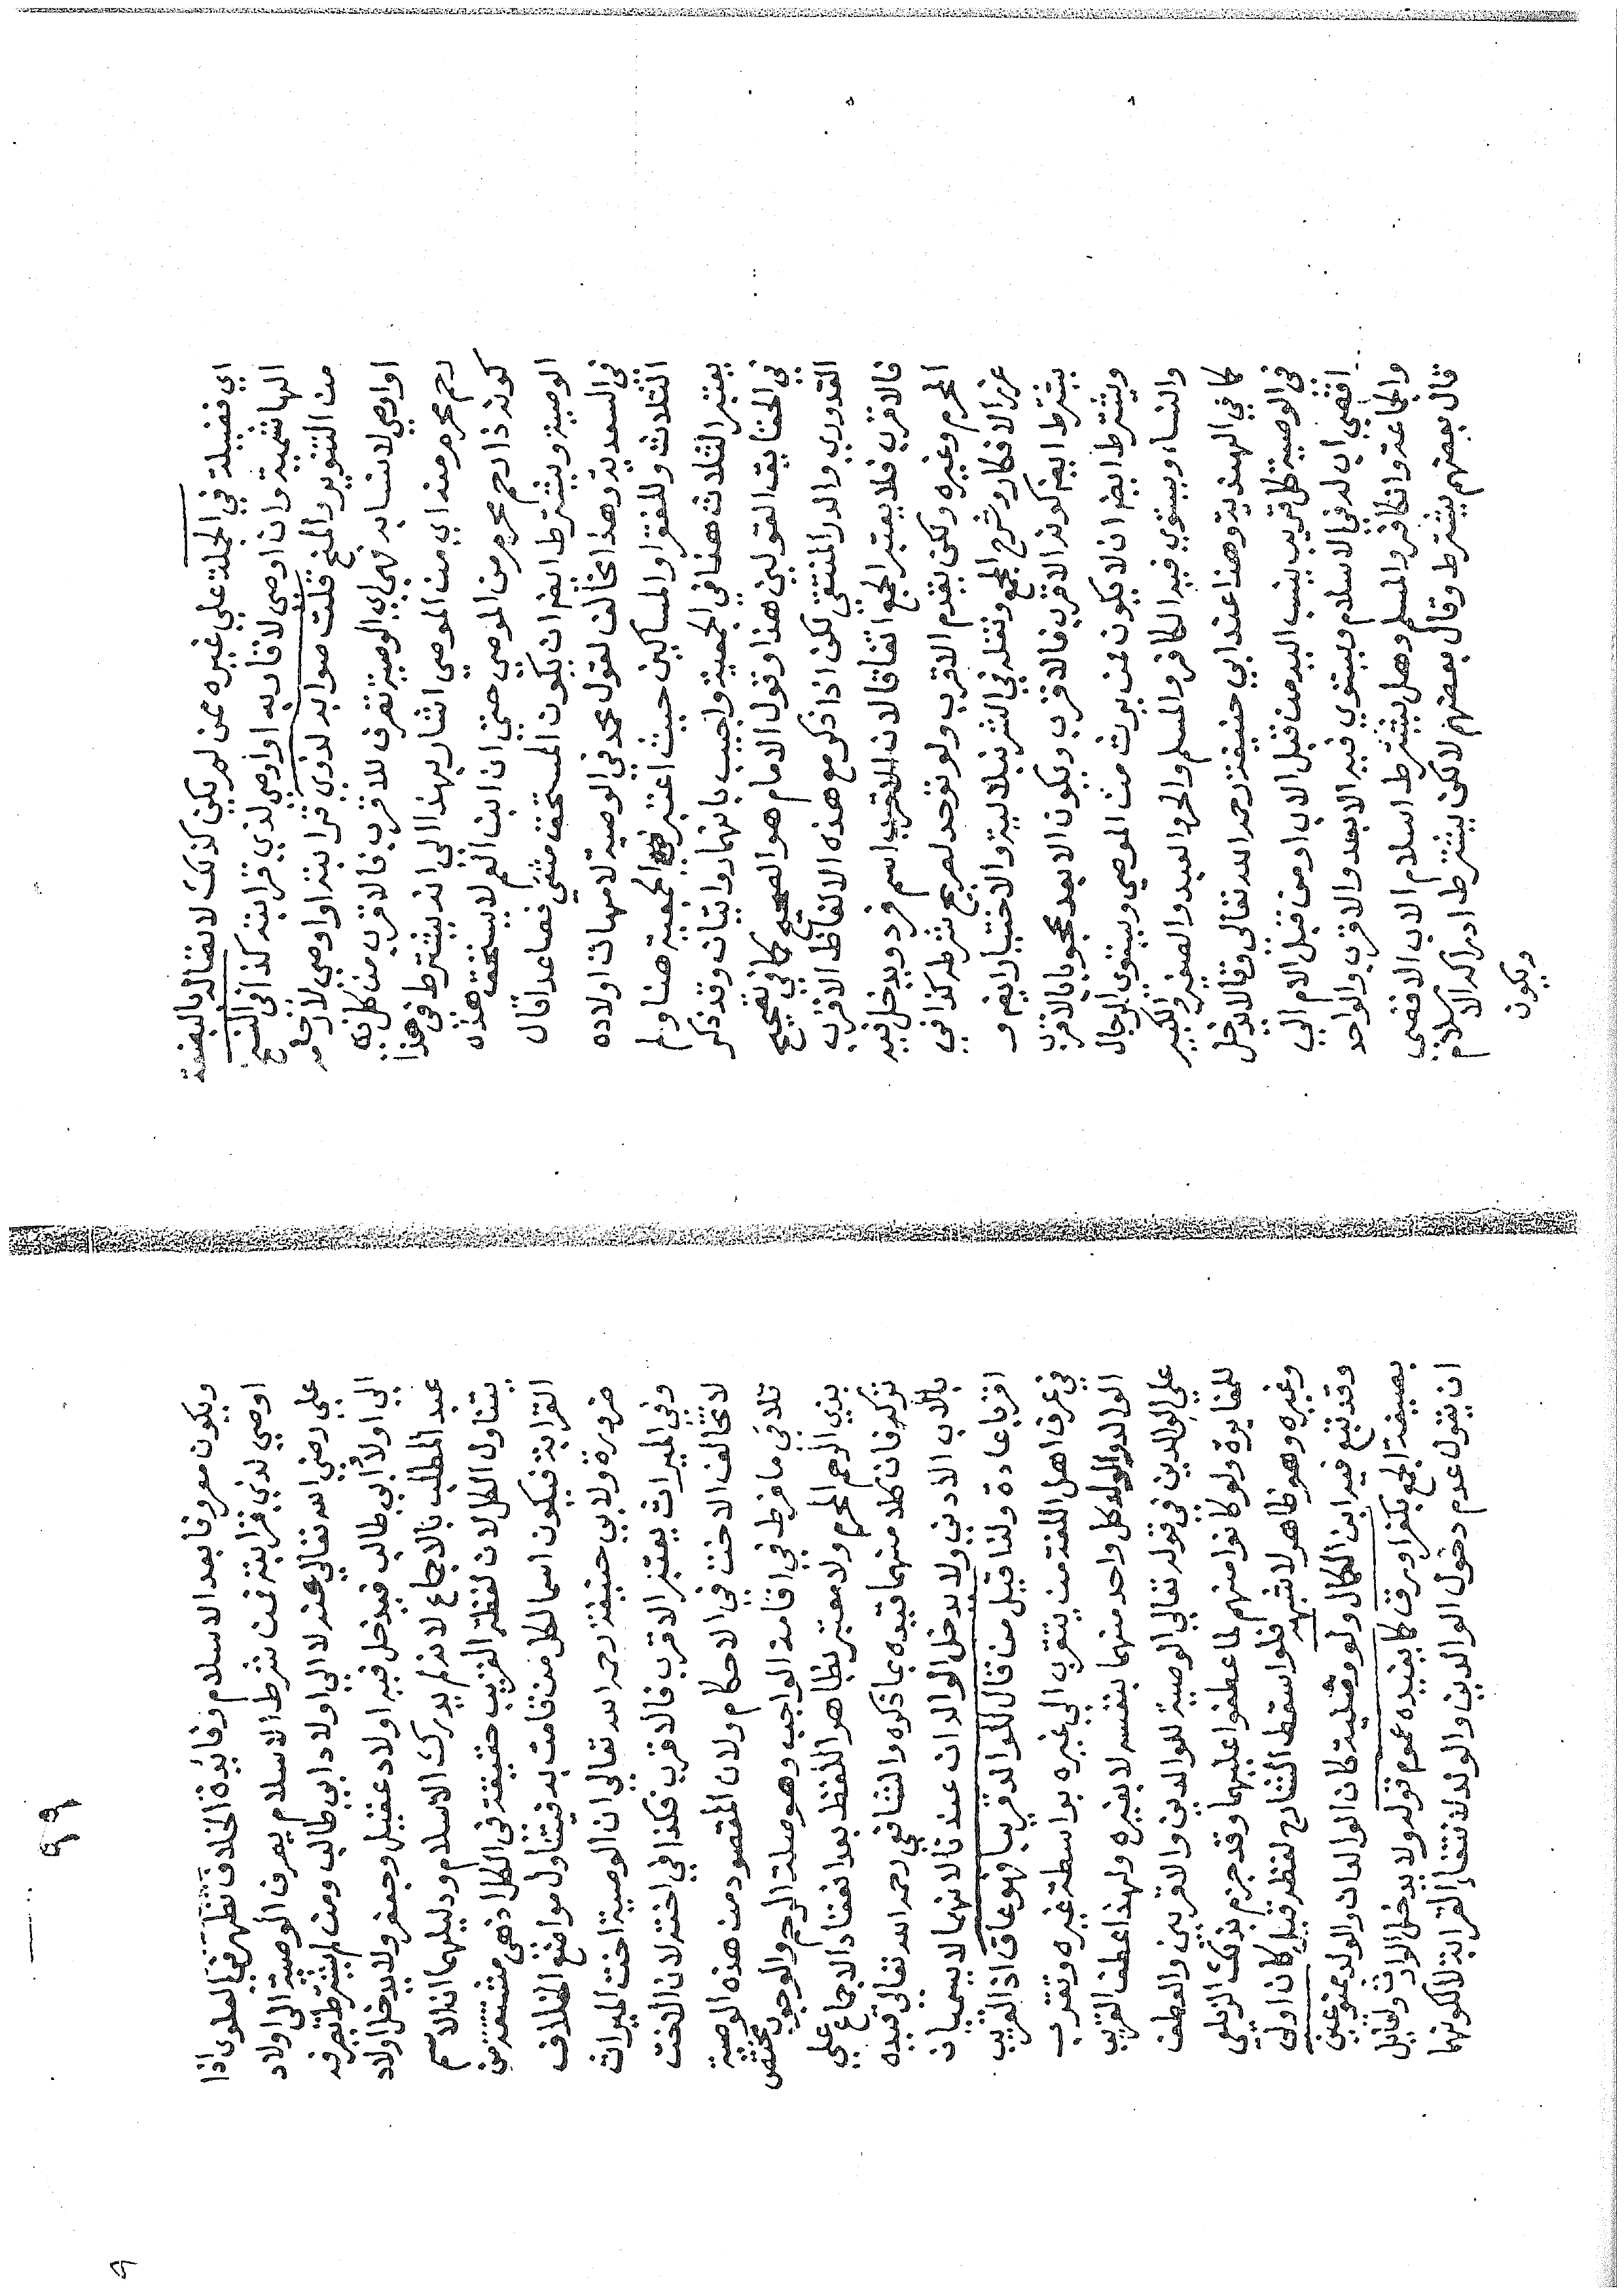 اي فضيلة في الجملة علي غيره ممن لم يكن كذلك لا نقاله بالبضعة
الهاشمية وان اوصي لاقاربه او اوصي لذي قرابته كذا في النسخ
من التنوير والمنح قلت صوابه لذوي قرابته او اوصي لارحامه
او اوصي لانسابه فهي اي الوصية تصرف للاقرب فالاقرب من كل ذي
رحم محرم منه اي من الموصي اشار بهذا الي انه يشترط في هذا
كونه ذا رحم محرم من الموصي حتي ان ابن العم لا يستحق هذه
الوصية ويشترط ايضا ان يكون المستحق مثني فصاعدا قال
في السعدية وهذا يخالف لقول محمد في الوصية لامهات اولاده
الثلاث وللفقرا والمساكين حيث اعتبر الجمعية هنا ولم
يعتبر الثلاث هنا في الجمعية واجيب بانهما روايتان وقد ذكر
في الحقايق القولين هذا وقول الامام هو الصحيح كما في تصحيح
القدوري والدر المنتقي لكن اذا ذكر مع هذه الالفاظ الاقرب
فالاقرب فلا يعتبر الجمع اتفاقا لان الاقرب اسم فرد ويدخل فيه
المحرم وغيره ولكن يقدم الاقرب ولو توحد لصريح شرطه كذا في
غرر الافكار وشرح المجمع ونقله في الشرنبلالية والاختيار ايضا و
يشترط ايضا كونه الاقرب فالاقرب ويكون الابعد محجوبا بالاقرب
ويشترط ايضا ان لا يكون ممن يرث من الموصي ويستوي الرجال
والنساء ويستوي فيه الكافر والمسلم والحر والعبد والصغير والكبير
كما في الهندية وهذا عند ابي حنيفة رحمه الله تعالى وقالا يدخل
في الوصية كل قريب ينسب اليه من قبل الاب او من قبل الام الي
اقصي اب له في الاسلام ويستوي فيه الابعد والاقرب والواحد
والجماعة والكافر والمسلم وهل يشترط اسلام الاب الاقصي
قال بعضهم يشترط وقال بعضهم لا لكن يشترط ادراكه الاسلام
ويكون
٩٩
ويكون معروفا بعد الاسلام وفائدة الخلاف تظهر في العلوي اذا
اوصي لذي قرابته فمن شرط الاسلام يصرف الوصية الي اولاد
علي رضي الله تعالي عنه لا الي اولاد ابي طالب ومن لم يشترط تصرف
الي اولاد ابي طالب فيدخل فيه اولاد عقيل وجعفر ولا يدخل اولاد
عبد المطلب بالاجماع لانه لم يدرك الاسلام ودليلهما ان الاسم
يتناول الكل لان لفظة القريب حقيقة في الكل اذ هي مشتقة من
القرابة فيكون اسما لكل من قامت به فيتناول مواضع الخلاف
ضرورة ولابي حنيفة رحمه الله تعالي ان الوصية اخت الميراث
وفي الميراث يعتبر الاقرب فالاقرب فكذا في اخته لان الاخت
لا تخالف الاخت في الاحكام ولان المقصود من هذه الوصية
تلافي ما فرط في اقامة الواجب وهو صلة الرحم والوجوب يختص
بذي الرحم المحرم ولا معتبر بظاهر اللفظ بعد انعقاد الاجماع علي
تركه فان كلا منهما قيده بما ذكره والشافعي رحمه الله تعالى قيده
بالاب الادني ولا يدخل الوالدان عندنا لانهما لا يسميان
اقربا عادة ولنا قيل من قال للوالد قريب فهو عاق اذ القريب
في عرف اهل اللغة من يتقرب الي غيره بواسطة غيره وتقرب
الوالد والولد كل واحد منهما بنفسه لا بغيره ولهذا عطف القريب
علي الوالدين في قوله تعالي الوصية للوالدين والاقربين والعطف
للمغايرة ولو كانوا منهم لما عطفوا عليهما وقد جزم بذلك الزيلعي
وغيره وهو ظاهر لا شبهة فلو اسقط الشارح لفظة قيل كان اولى
وقد تبع فيه ابن الكمال ولو وصلية كان الوالدان والولد ممنوعين
بصيغة الجمع بكفر او رق كما يفيده عموم قوله ولا يدخل الوارث ولقايل
ان يقول عدم دخول الوالدين والولد لانتفاء القرابة لا لكونهما